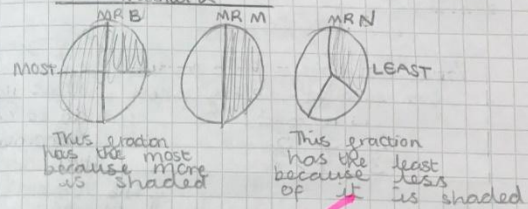 MR B MR M MR N
MOST LEAST
This fraction
has the most
because more
is shaded
This fraction
has the least
because less
of it is shaded